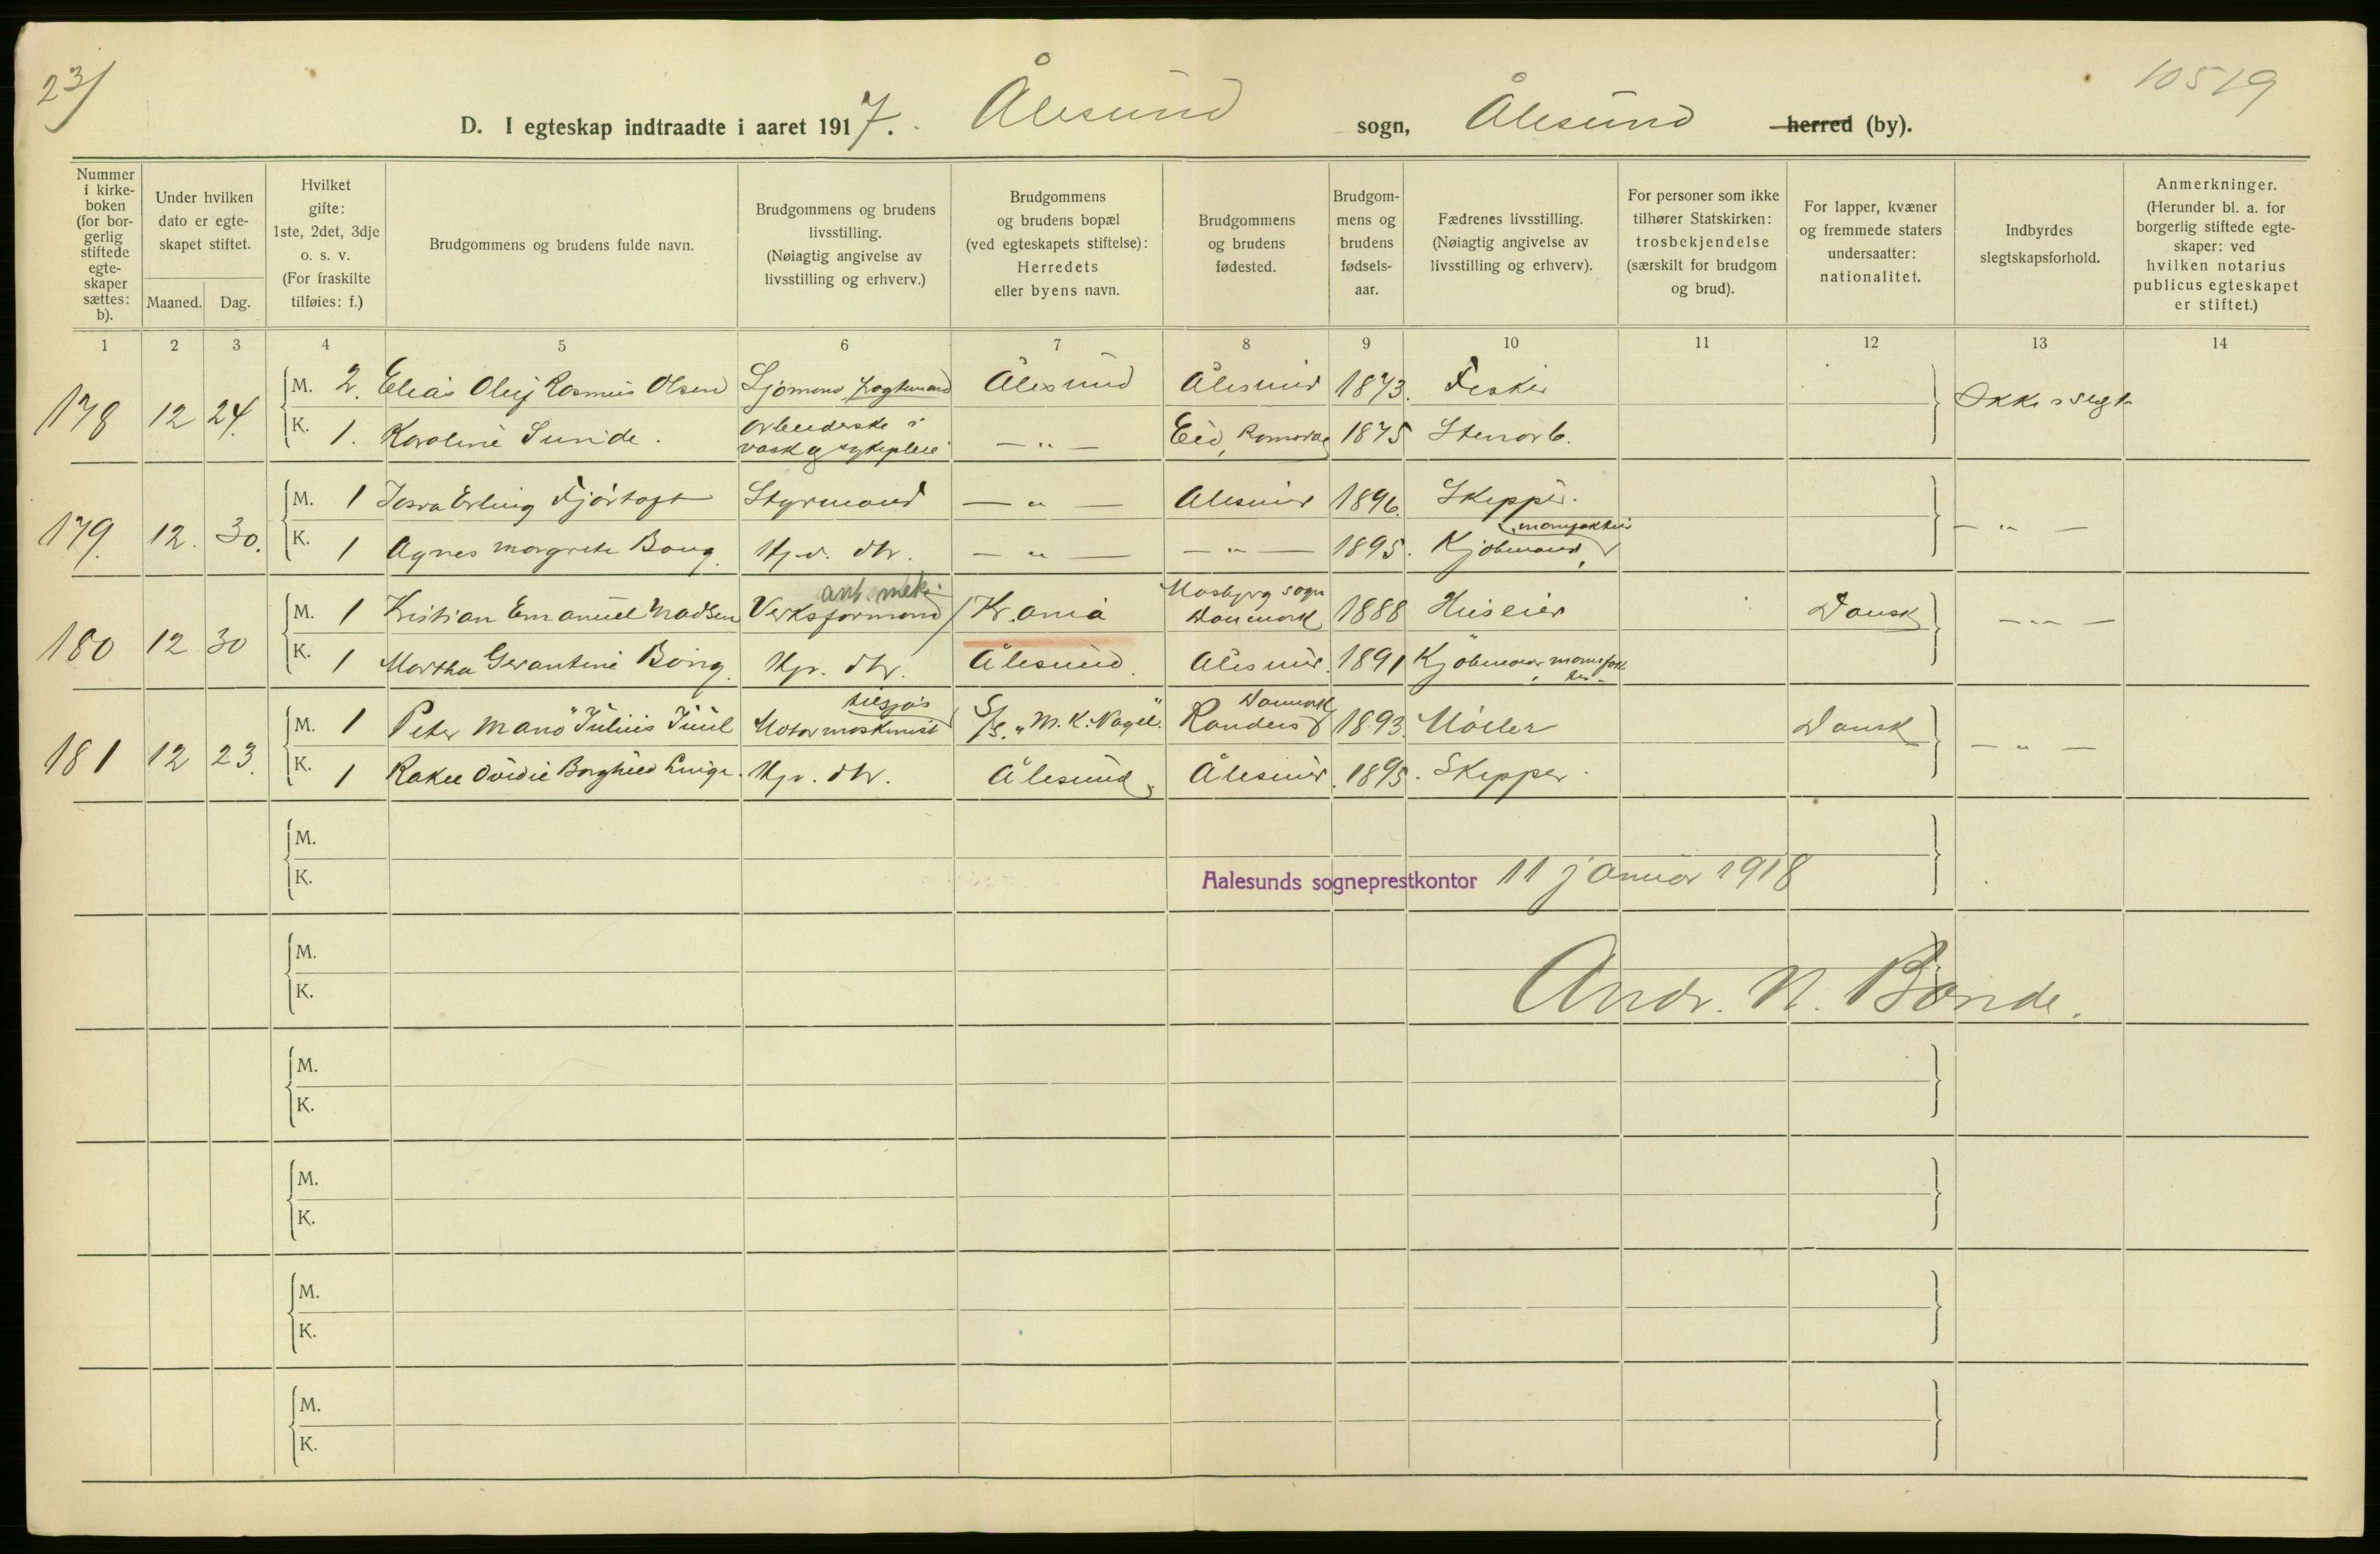 23/
10519
D. I egteskap indtraadte i aaret 1917. Ålesund sogn, Ålesund herred (by).
Nummer i kirkeboken (for borgerlig stiftede egteskaper sættes: b).
Under hvilken dato er egteskapet stiftet.
Maaned. Dag.
Hvilket gifte: 1ste, 2det, 3dje o. s. v. (For fraskilte tilføies: f.)
Brudgommens og brudens fulde navn.
Brudgommens og brudens livsstilling. (Nøiagtig angivelse av livsstilling og erhverv.)
Brudgommens og brudens bopæl (ved egteskapets stiftelse): Herredets eller byens navn.
Brudgommens og brudens fødested.
Brudgommens og brudens fødselsaar.
Fædrenes livsstilling. (Nøiagtig angivelse av livsstilling og erhverv).
For personer som ikke tilhører Statskirken: trosbekjendelse (særskilt for brudgom og brud).
For lapper, kvæner og fremmede staters undersaatter: nationalitet.
Indbyrdes slegtskapsforhold.
Anmerkninger. (Herunder bl. a. for borgerlig stiftede egteskaper: ved hvilken notarius publicus egteskapet er stiftet.)
1 2 3 4 5 6 7 8 9 10 11 12 13 14
178 12 24. M. 2. Elias Olej Rasmus Olsen Sjømand Ålesund Ålesund 1873. Fisker Ikke i slegt
K. 1. Karoline Sunde. Arbeiderske i vask og sykepleie — " — Eid, Romsdag 1875 Stenarb.
179. 12. 30. M. 1 Erling Fjørtoft Styrmand — " — Ålesund 1896. Skipper. — " —
K. 1 Agnes Margrete Bang Hj.v. dtr. — " — — " — 1895. Kjøbmand
180 12 30 M. 1 Kristian Emanuel Madsen Verksformand Kr.ania Mosbjerg sogn Danmark 1888 Huseier Dansk — " —
K. 1 Martha Gerantine Bang Hjv. dtr. Ålesund. Ålesund. 1891 Kjøbmand
181 12 23. M. 1 Peter Manø Julius Juul Motormaskinist tilsjøs S/S. "M. K. Nagel" Randers Danmark 1893. Møller Dansk — " —
K. 1 Rakel Ovidie Borghild Linge. Hjv. dtr. Ålesund, Ålesund. 1895. Skipper.
M.
K.
Aalesunds sogneprestkontor 11 januar 1918
M.
K.
Andr. N. Bonde.
M.
K.
M.
K.
M.
K.
M.
K.